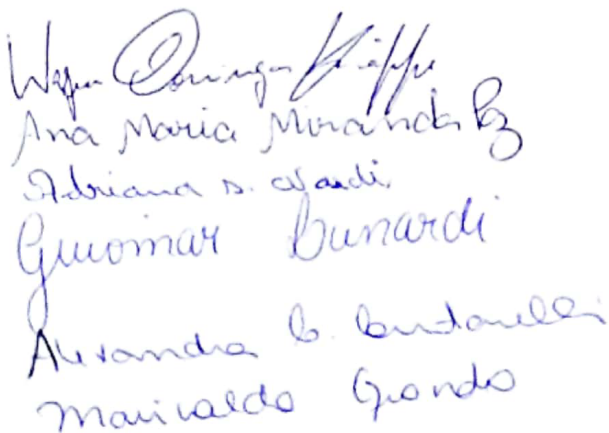 Wagner Domingos
Ana Maria Miranda Paz
Adriana S. Nardi
Guiomar Bunardi
Alexandra C.
Marivaldo Grando